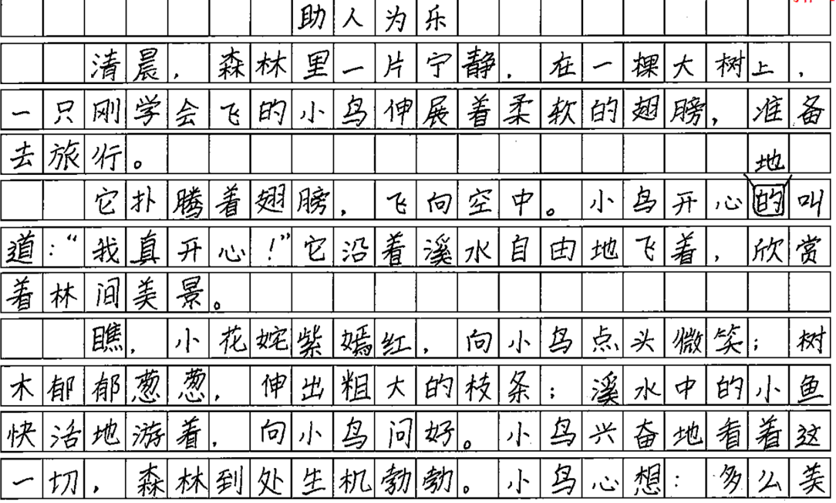 助人为乐
清晨，森林里一片宁静，在一棵大树上，
一只刚学会飞的小鸟伸展着柔软的翅膀，准备
去旅行。
地
它扑腾着翅膀，飞向空中。小鸟开心的叫
道：“我真开心！”它沿着溪水自由地飞着，欣赏
着林间美景。
瞧，小花姹紫嫣红，向小鸟点头微笑；树
木郁郁葱葱，伸出粗大的枝条；溪水中的小鱼
快活地游着，向小鸟问好。小鸟兴奋地看着这
一切，森林到处生机勃勃。小鸟心想：多么美